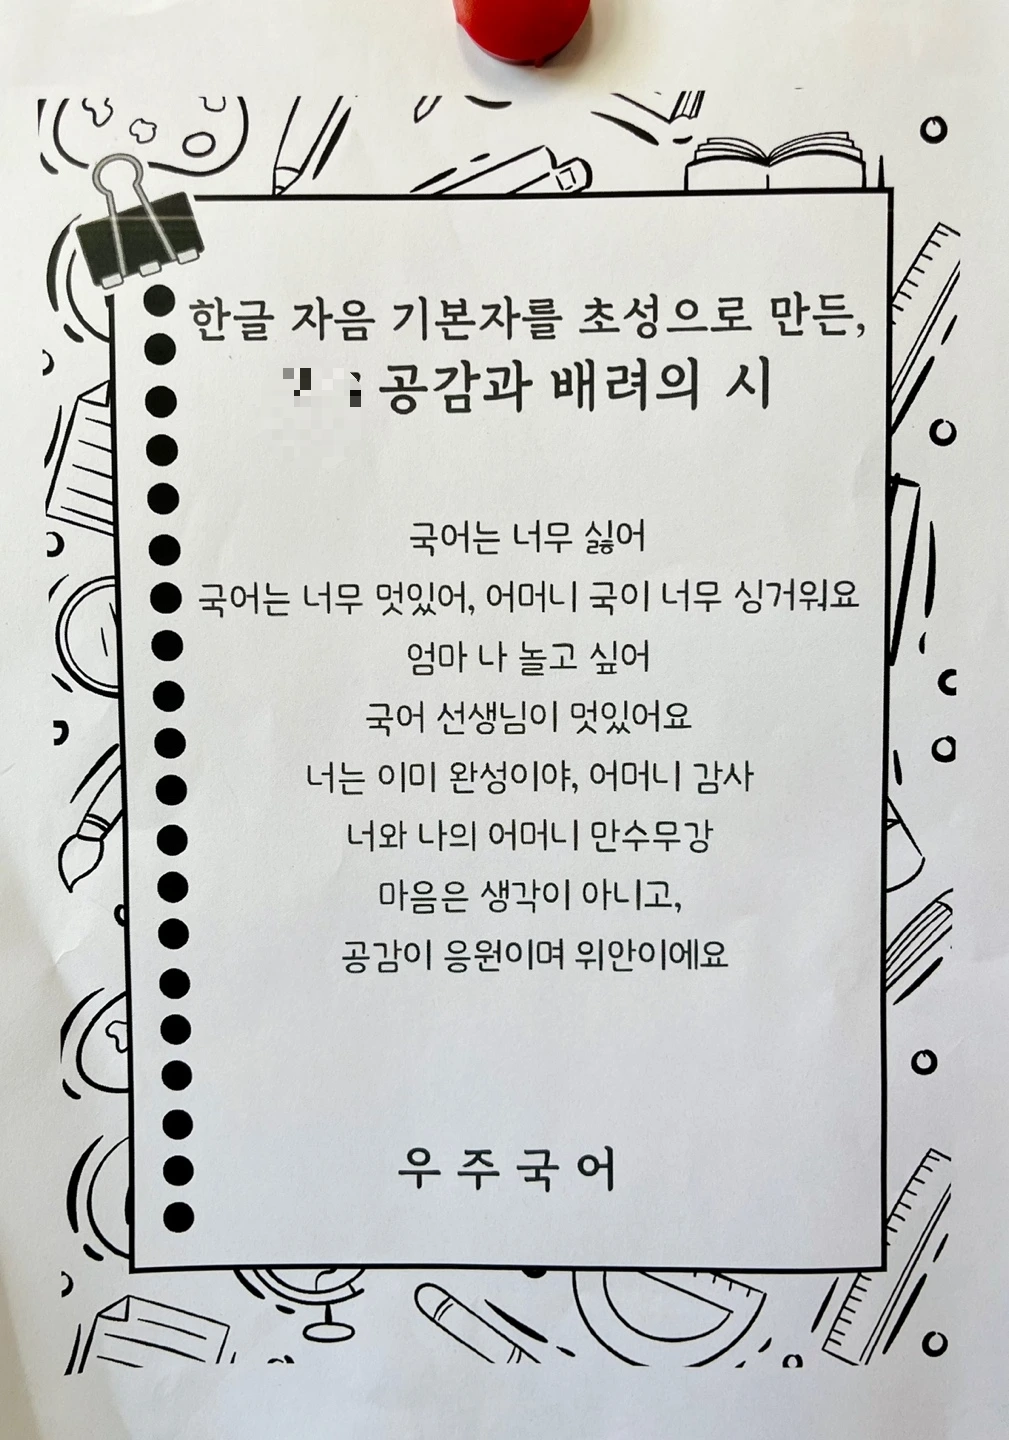 한글 자음 기본자를 초성으로 만든,
공감과 배려의 시
국어는 너무 싫어
국어는 너무 멋있어, 어머니 국이 너무 싱거워요
엄마 나 놀고 싶어
국어 선생님이 멋있어요
너는 이미 완성이야, 어머니 감사
너와 나의 어머니 만수무강
마음은 생각이 아니고,
공감이 응원이며 위안이에요
우주국어